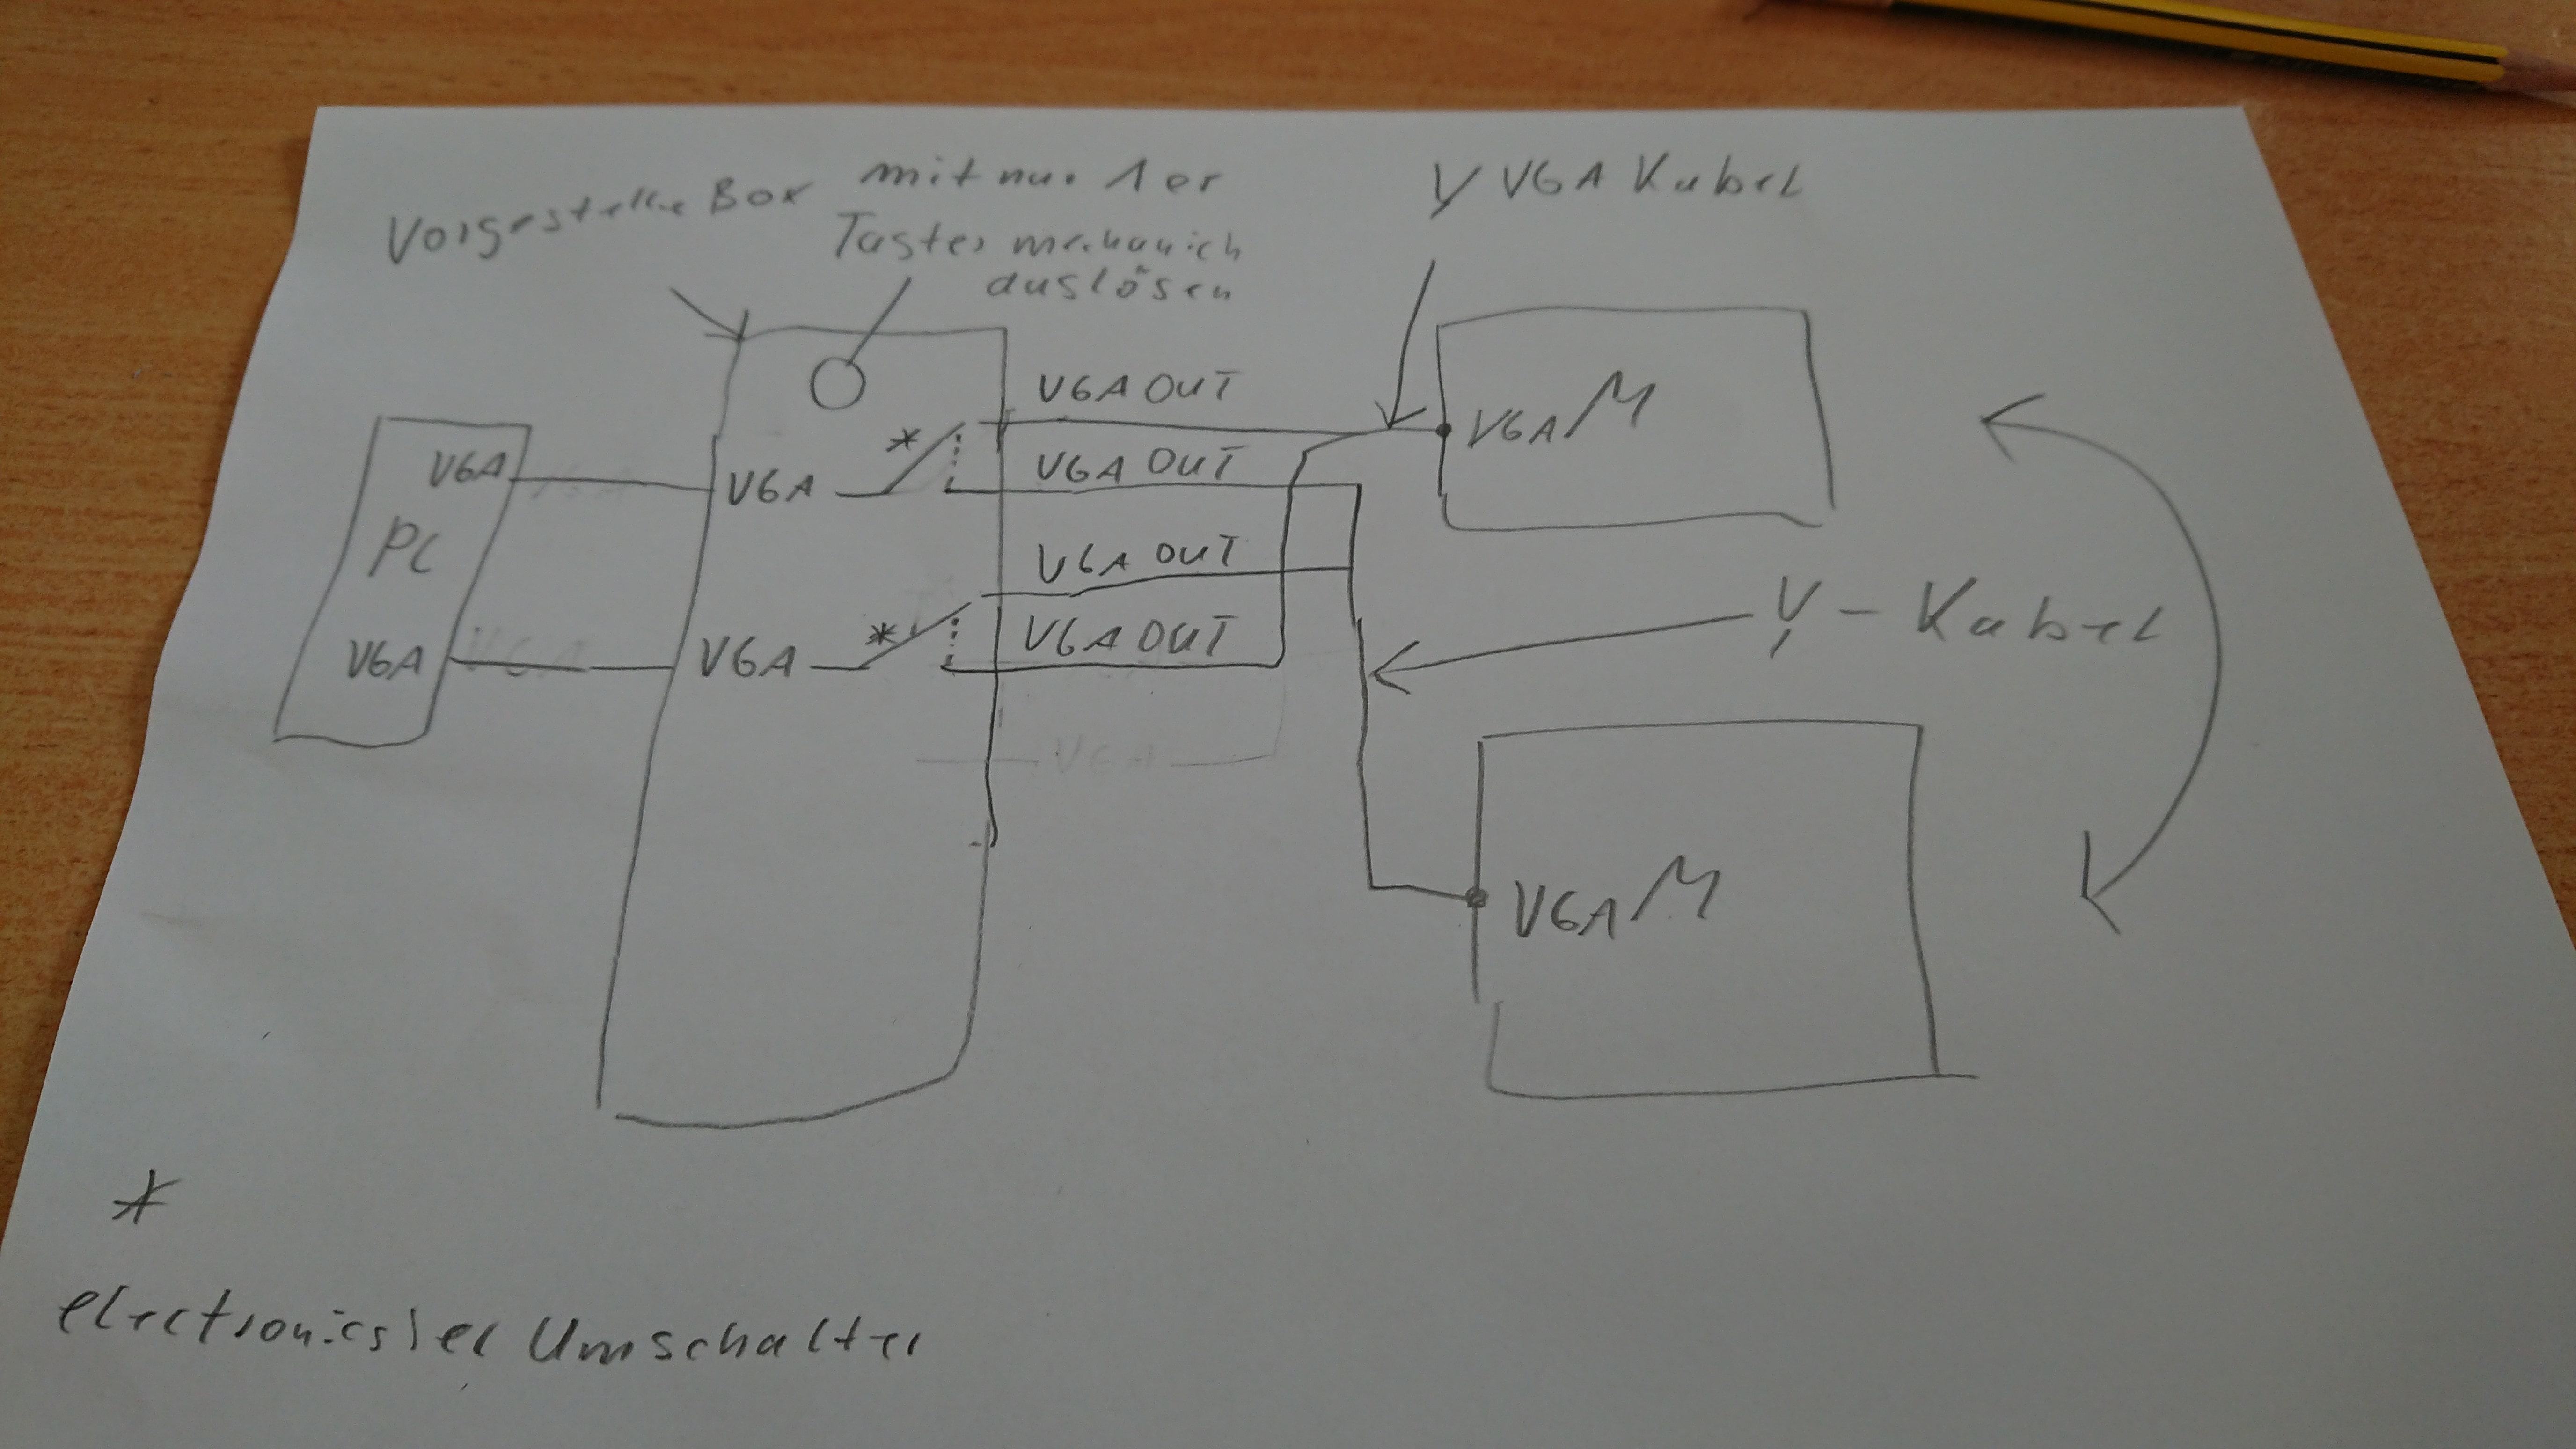 Vorgestellte Box
mit nur 1er
Taster mechanich
auslösen
Y VGA Kabel
VGA OUT
VGA M
VGA OUT
VGA
VGA
PC
VGA OUT
Y - Kabel
VGA OUT
VGA
VGA
VGA
VGA M
*
*
*
electronischer Umschalter